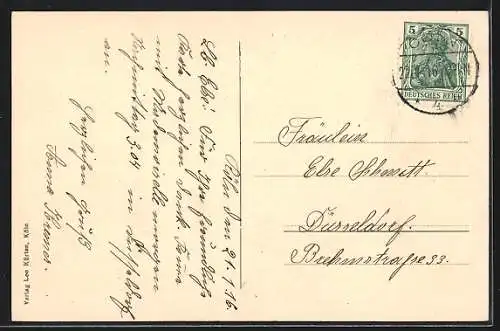 Köln den 21.1.16.
Lb. Else! Für Ihre freundliche
Karte herzlichen Dank. Komme
mit Mademoiselle morgen
Nachmittag 3.04 in Düsseldorf
an.
Herzlichen Gruß
Anna
Fräulein
Else Schmitt.
Düsseldorf.
Brehmstrasse 33.
5 5
DEUTSCHES REICH
Verlag Leo Kürten, Köln.